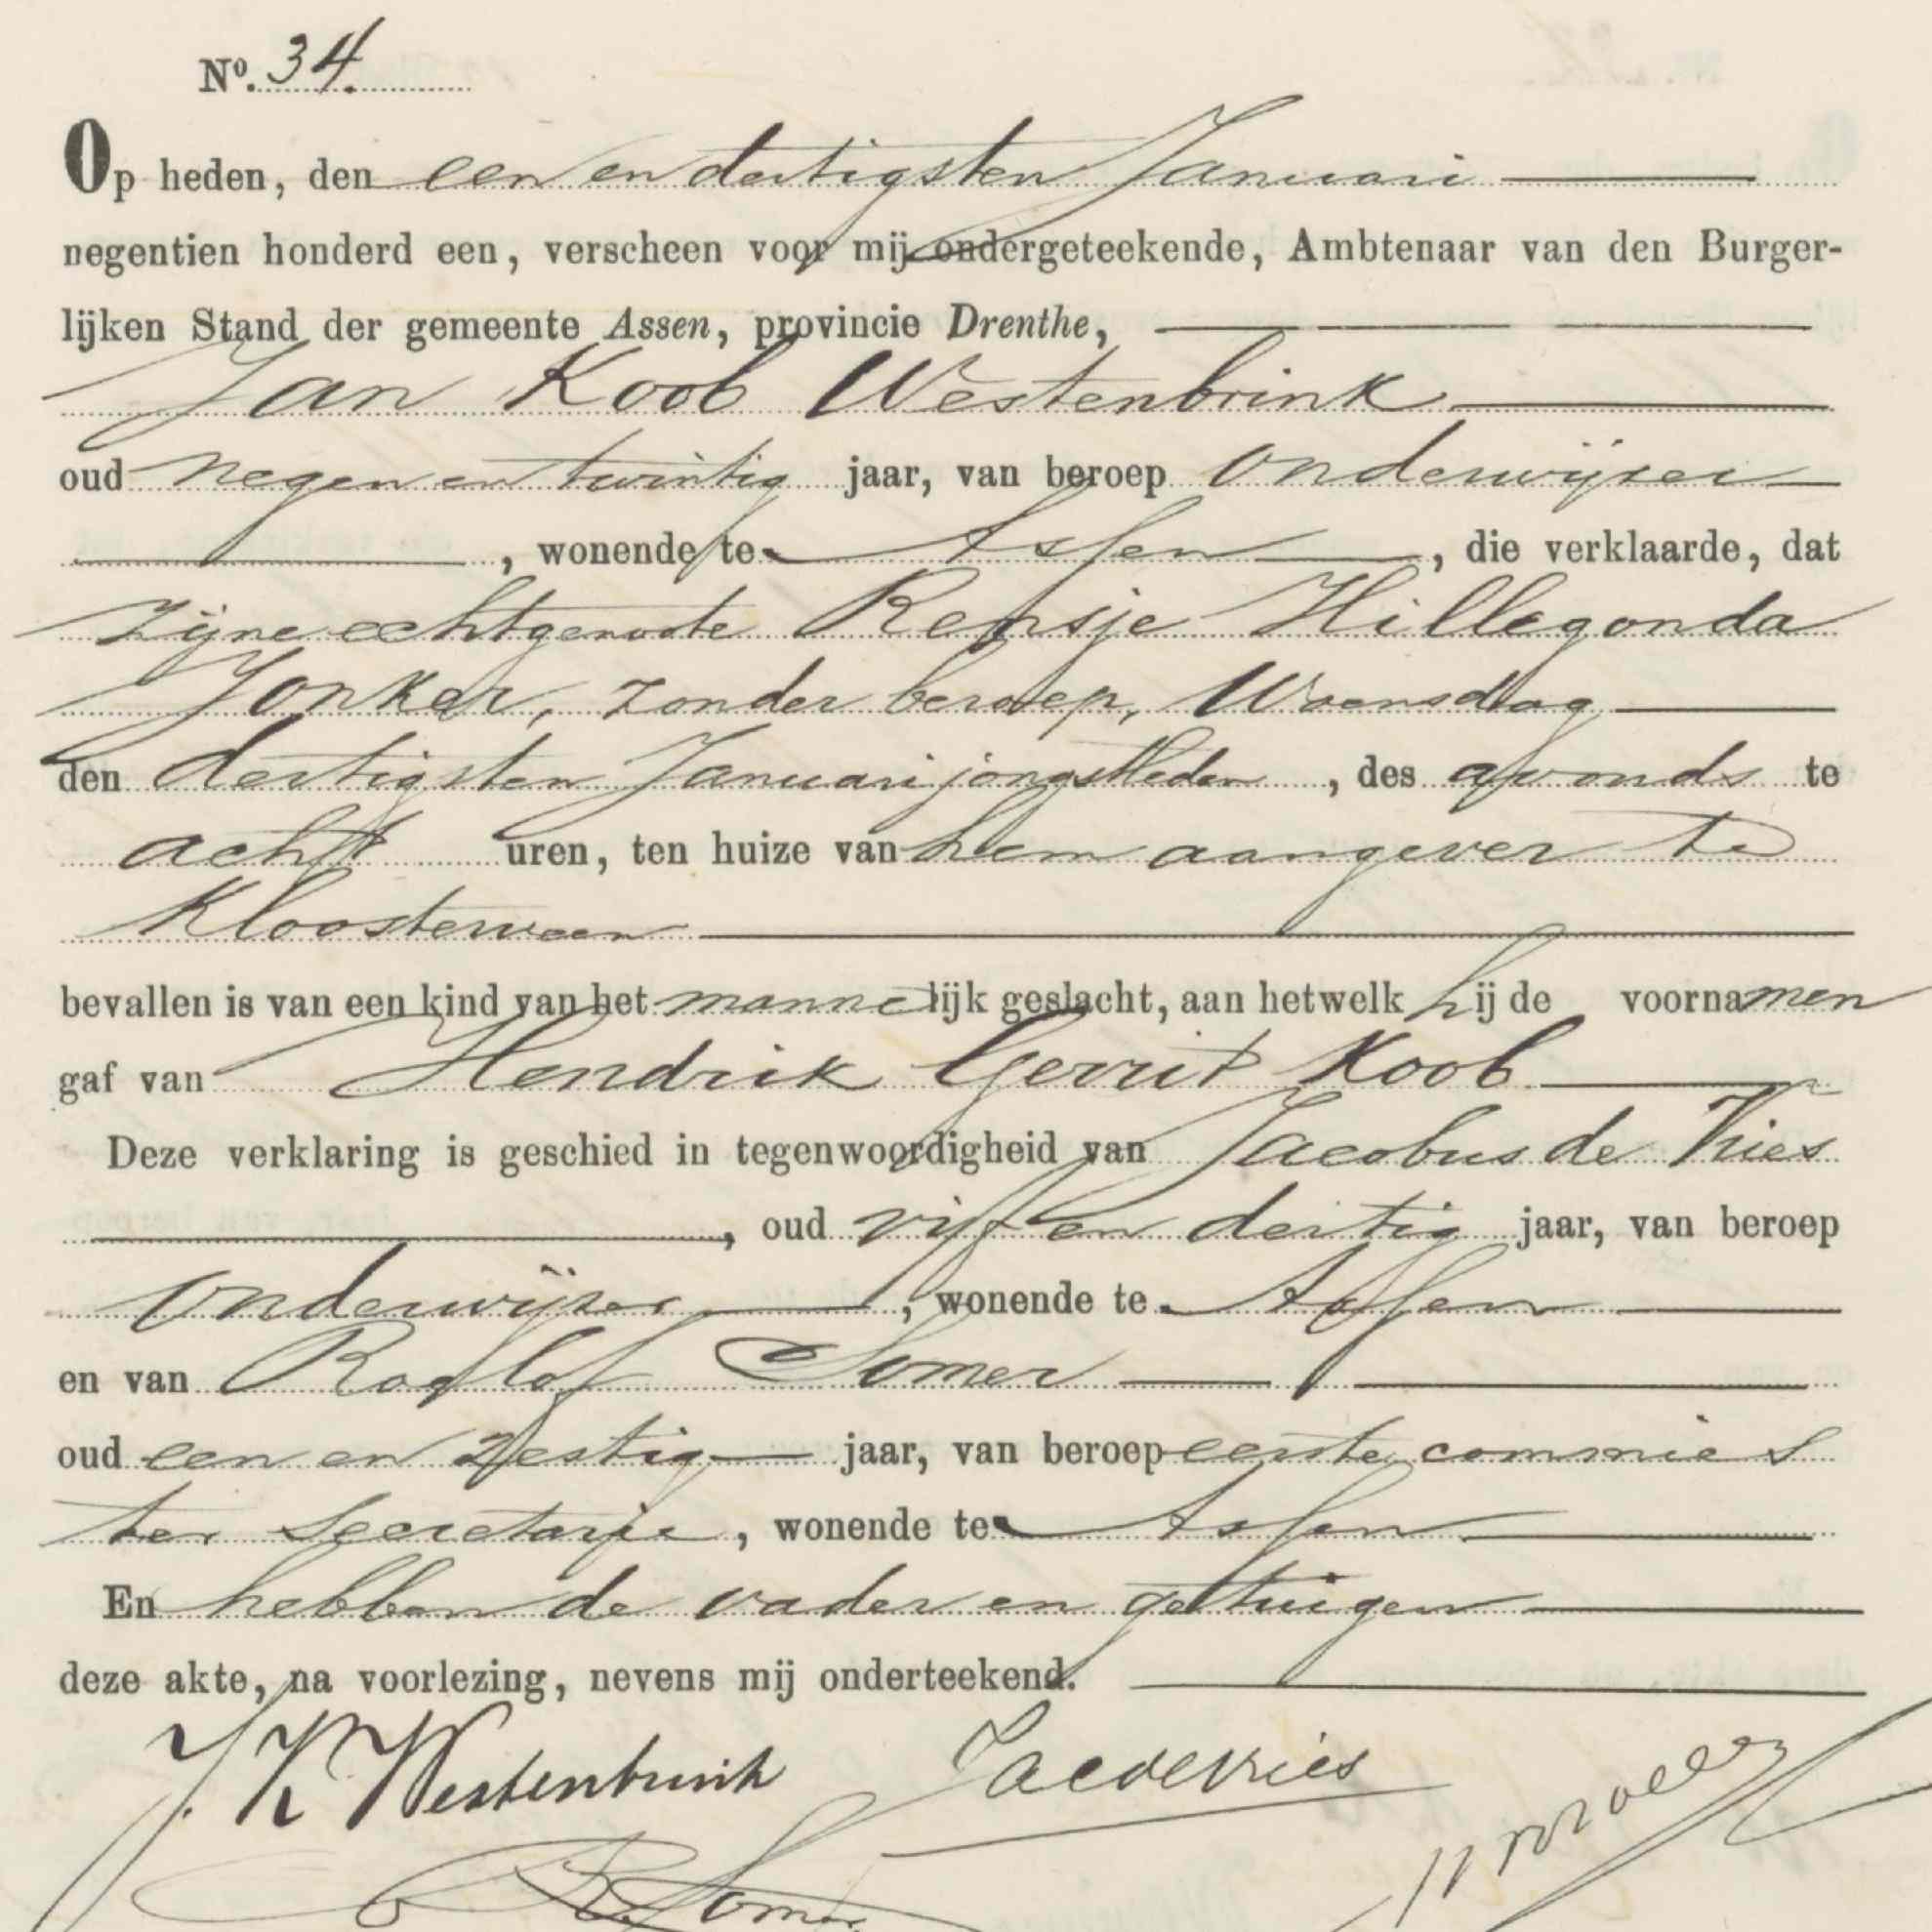 No. 34.
Op heden, den een en dertigsten Januari
negentien honderd een, verscheen voor mij ondergeteekende, Ambtenaar van den Burger-
lijken Stand der gemeente Assen, provincie Drenthe,
Jan Koob Westenbrink
oud negen en twintig jaar, van beroep onderwijzer
, wonende te Assen, die verklaarde, dat
zijne echtgenoote Rensje Hillegonda
Jonker, zonder beroep, Woensdag
den dertigsten Januari jongstleden, des avonds te
acht uren, ten huize van hem aangever te
Kloosterveen
bevallen is van een kind van het mannelijk geslacht, aan hetwelk hij de voornamen
gaf van Hendrik Gerrit Koob
Deze verklaring is geschied in tegenwoordigheid van Jacobus de Vries
, oud vijf en dertig jaar, van beroep
onderwijzer, wonende te Assen
en van Roelof Somer
oud een en zestig jaar, van beroep eerste commies
ter Secretarie, wonende te Assen
En hebben de vader en getuigen
deze akte, na voorlezing, nevens mij onderteekend.
J. K Westenbrink Jac de Vries
R. Somer